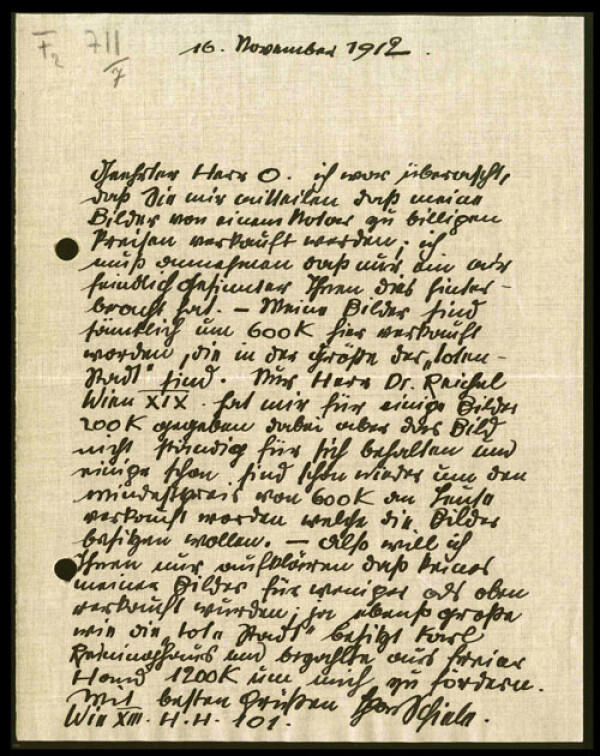 F2 711/7
16. November 1912.
Geehrter Herr O. ich war überrascht,
daß Sie mir mitteilen daß meine
Bilder von einem Notar zu billigen
Preisen verkauft werden; ich
muß annehmen daß nur ein mir
feindlich Gesinnter Ihnen das hinter-
bracht hat. – Meine Bilder sind
sämtlich um 600 K hier verkauft
worden, die in der Größe der „toten-
Stadt" sind. Nur Herr Dr. Reichel
Wien XIX. hat mir für einige Bilder
200 K gegeben dabei aber das Bild
nicht ständig für sich behalten und
einige schon sind schon wieder um den
Mindestpreis von 600 K an Leute
verkauft worden welche die Bilder
besitzen wollen. – Also will ich
Ihnen nur aufklären daß keines
meiner Bilder für weniger als oben
verkauft wurden; ja ebenso große
wie die „tote Stadt" besitzt Karl
Reininghaus und bezahlte aus freier
Hand 1200 K um mich zu fördern.
Mit besten Grüßen Egon Schiele.
Wien XIII. H. H. 101.